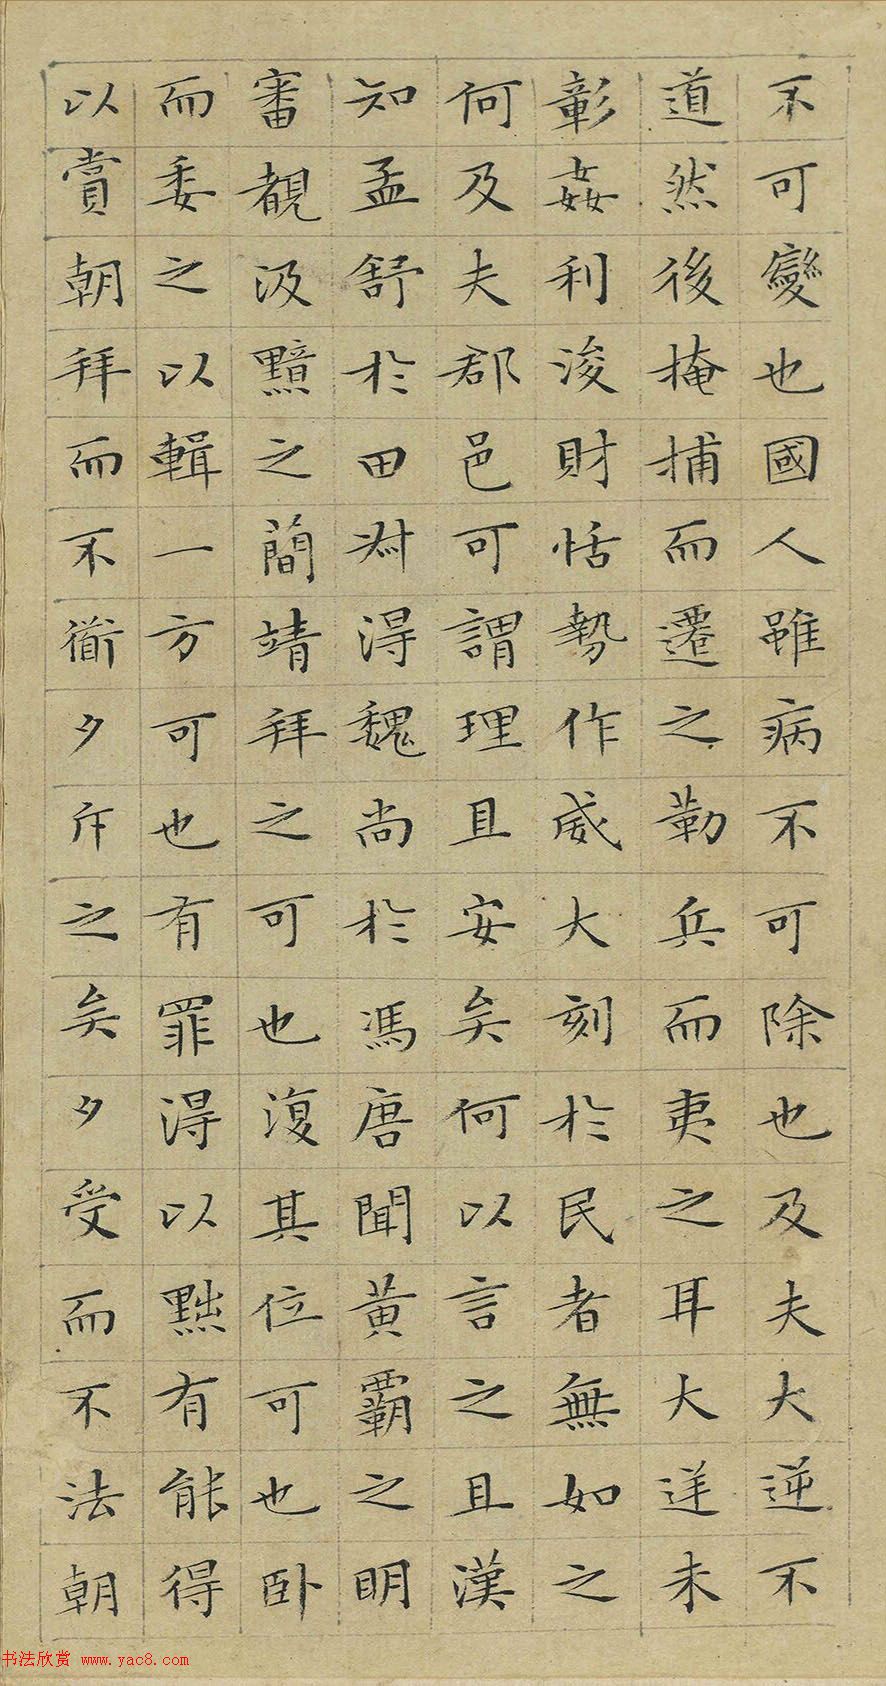 不可變也國人雖病不可除也及夫大逆不
道然後掩捕而遷之勒兵而夷之耳大逆未
彰姦利浚財怙勢作威大刻於民者無如之
何及夫郡邑可謂理且安矣何以言之且漢
知孟舒於田叔得魏尚於馮唐聞黃霸之明
審覩汲黯之簡靖拜之可也復其位可也卧
而委之以輯一方可也有罪得以黜有能得
以賞朝拜而不衟夕斥之矣夕受而不法朝
书法欣赏 www.yac8.com